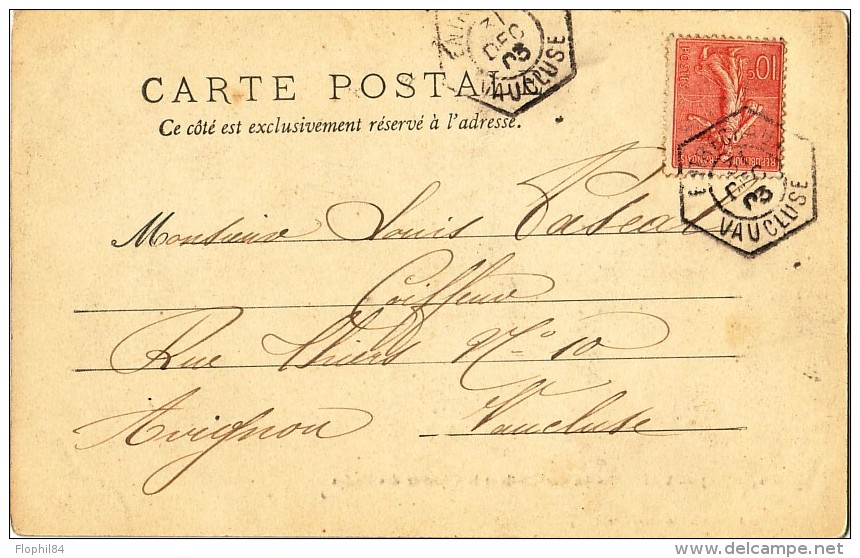 31
DEC
03
VAUCLUSE
CARTE POSTALE
Ce côté est exclusivement réservé à l'adresse.
10c
POSTES
REPUBLIQUE FRANÇAISE
DEC
03
VAUCLUSE
Monsieur Louis Pascal
Coiffeur
Rue Thiers N° 10
Avignon Vaucluse
Flophil84
www.delcampe.net